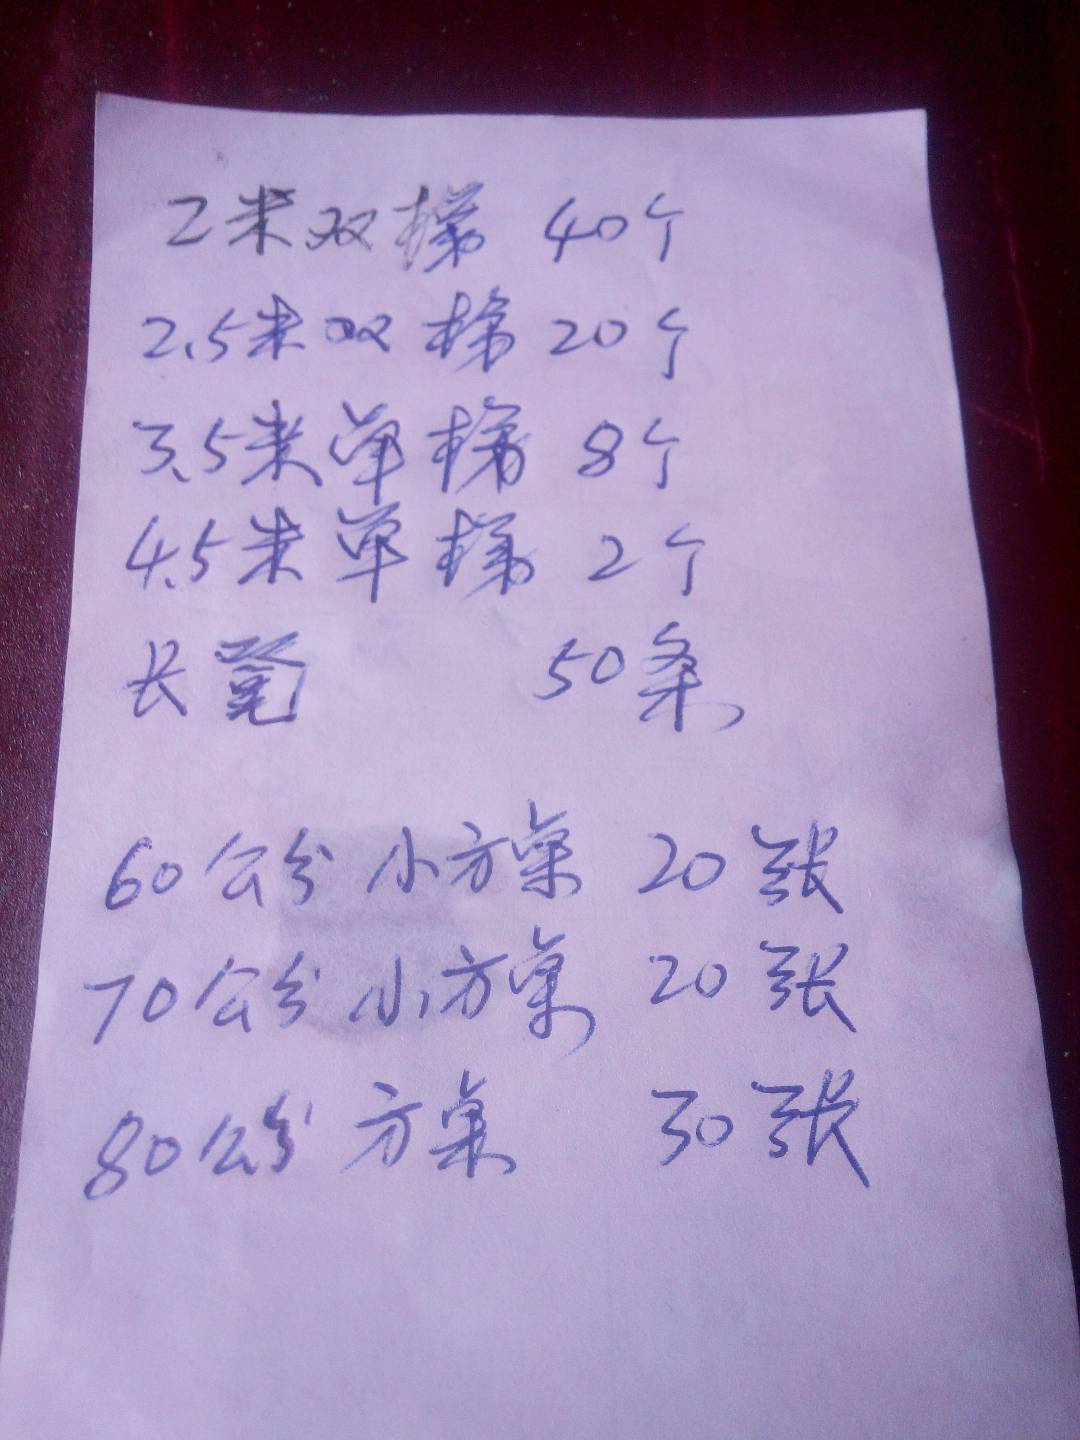 2米双梯 40个
2.5米双梯 20个
3.5米单梯 8个
4.5米单梯 2个
长凳 50条
60公分小方桌 20张
70公分小方桌 20张
80公分方桌 30张